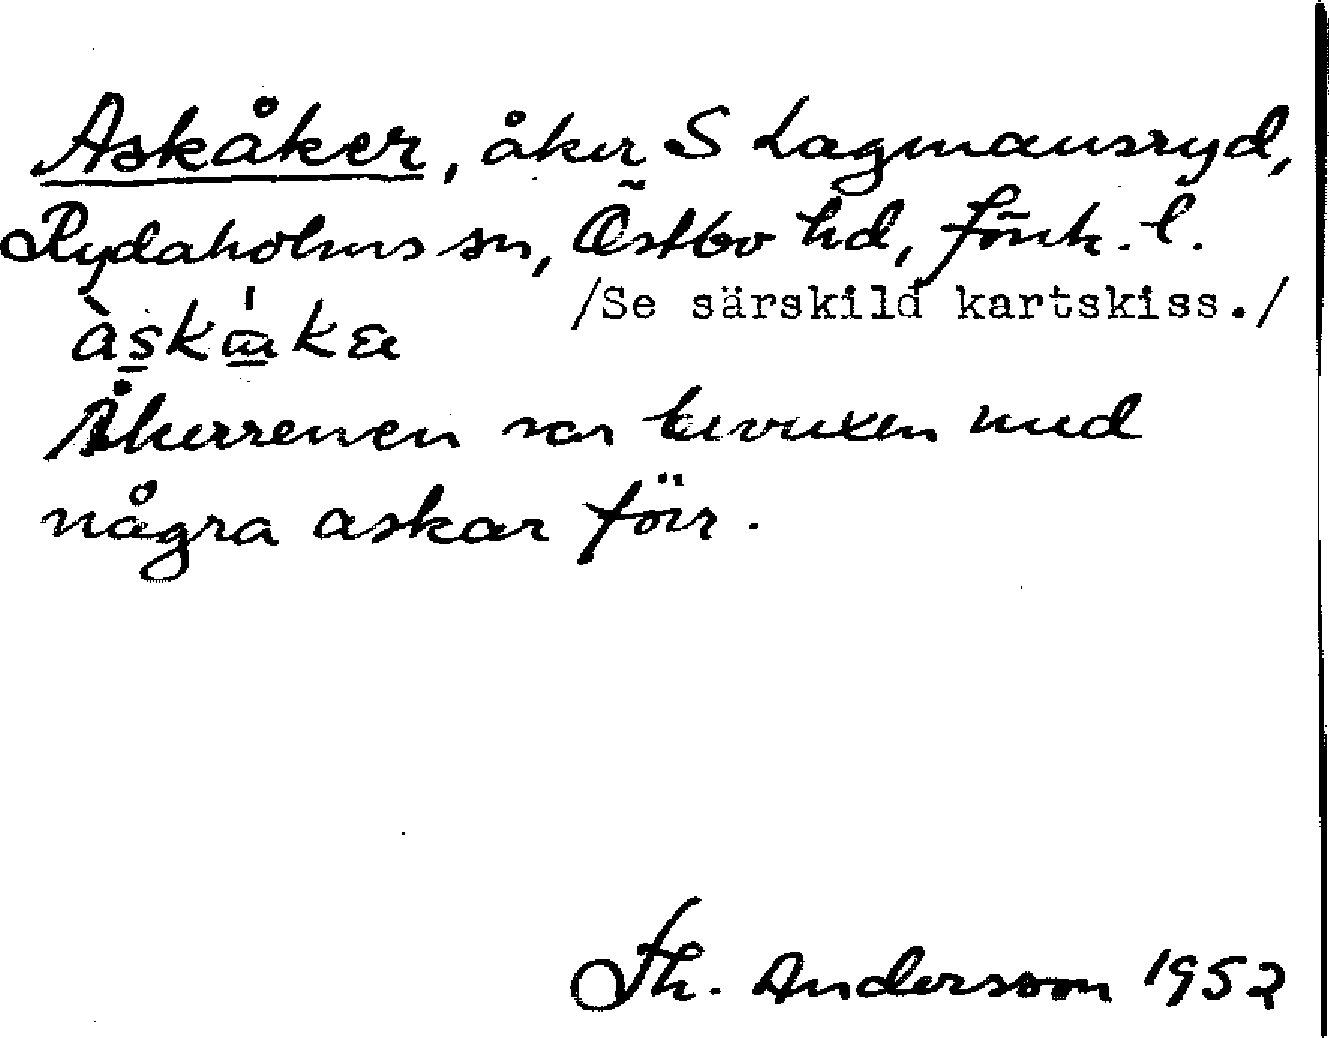 Askåker, åker S Lagmansryd,
Rydaholms sn, Östbo hd, Jönk. l.
/Se särskild kartskiss./
Åkerrenen var bevuxen med
några askar förr.
Th. Andersson 1952